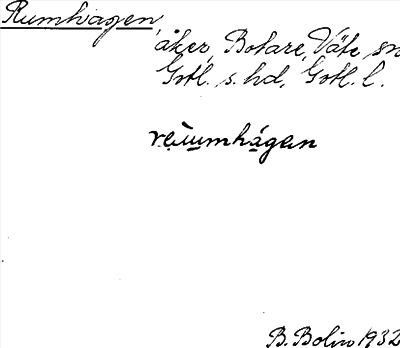 Rumhagen,
åker, Botare, Väte sn
Gotl. s. hd, Gotl. l.
B. Bolin 1932